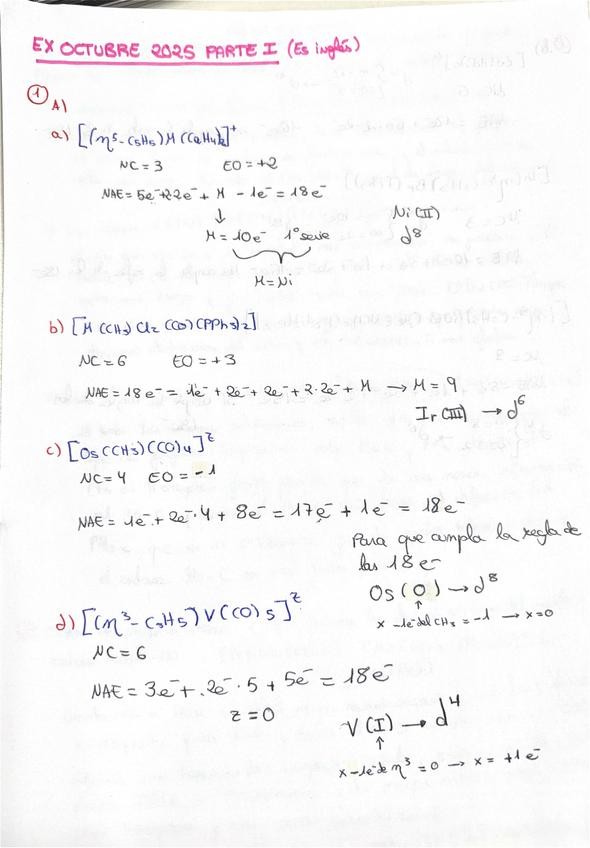 EX OCTUBRE 2025 PARTE I (Es inglés)
① A)
a) [(η⁵-C₅H₅)M(C₂H₄)₂]⁺
NC=3 EO=+2
NAE= 5e⁻+2·2e⁻ + M - 1e⁻ = 18e⁻
↓
M=10e⁻ 1ª serie
Ni(II)
d⁸
M=Ni
b) [M(CH₃)Cl₂(CO)(PPh₃)₂]
NC=6 EO=+3
NAE=18e⁻= 1e⁻ + 2e⁻ + 2e⁻ + 2·2e⁻ + M → M=9
Ir(III) → d⁶
c) [Os(CH₃)(CO)₄]ᶻ
NC=4 EO=-1
NAE= 1e⁻ + 2e⁻·4 + 8e⁻ = 17e⁻ + 1e⁻ = 18e⁻
Para que cumpla la regla de
las 18e⁻
Os(0) → d⁸
↑
x -1e⁻ del CH₃ = -1 → x=0
d) [(η³-C₃H₅)V(CO)5]ᶻ
NC=6
NAE= 3e⁻ + 2e⁻·5 + 5e⁻ = 18e⁻
z=0
V(I) → d⁴
↑
x-1e⁻ de η³ = 0 → x = +1e⁻